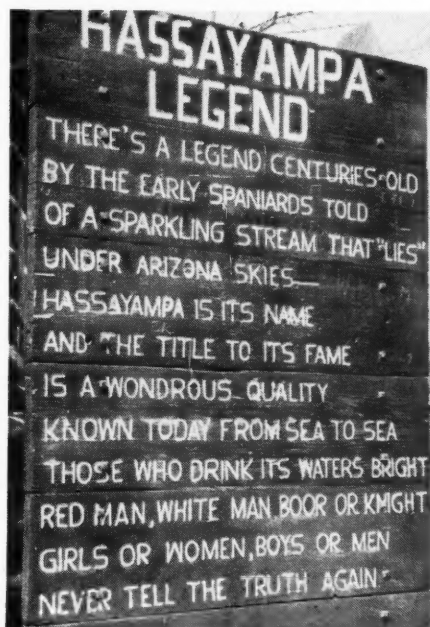 HASSAYAMPA
LEGEND
THERE'S A LEGEND CENTURIES-OLD
BY THE EARLY SPANIARDS TOLD
OF A SPARKLING STREAM THAT "LIES"
UNDER ARIZONA SKIES—
HASSAYAMPA IS ITS NAME
AND THE TITLE TO ITS FAME
IS A WONDROUS QUALITY
KNOWN TODAY FROM SEA TO SEA
THOSE WHO DRINK ITS WATERS BRIGHT
RED MAN, WHITE MAN, BOOR OR KNIGHT
GIRLS OR WOMEN, BOYS OR MEN
NEVER TELL THE TRUTH AGAIN